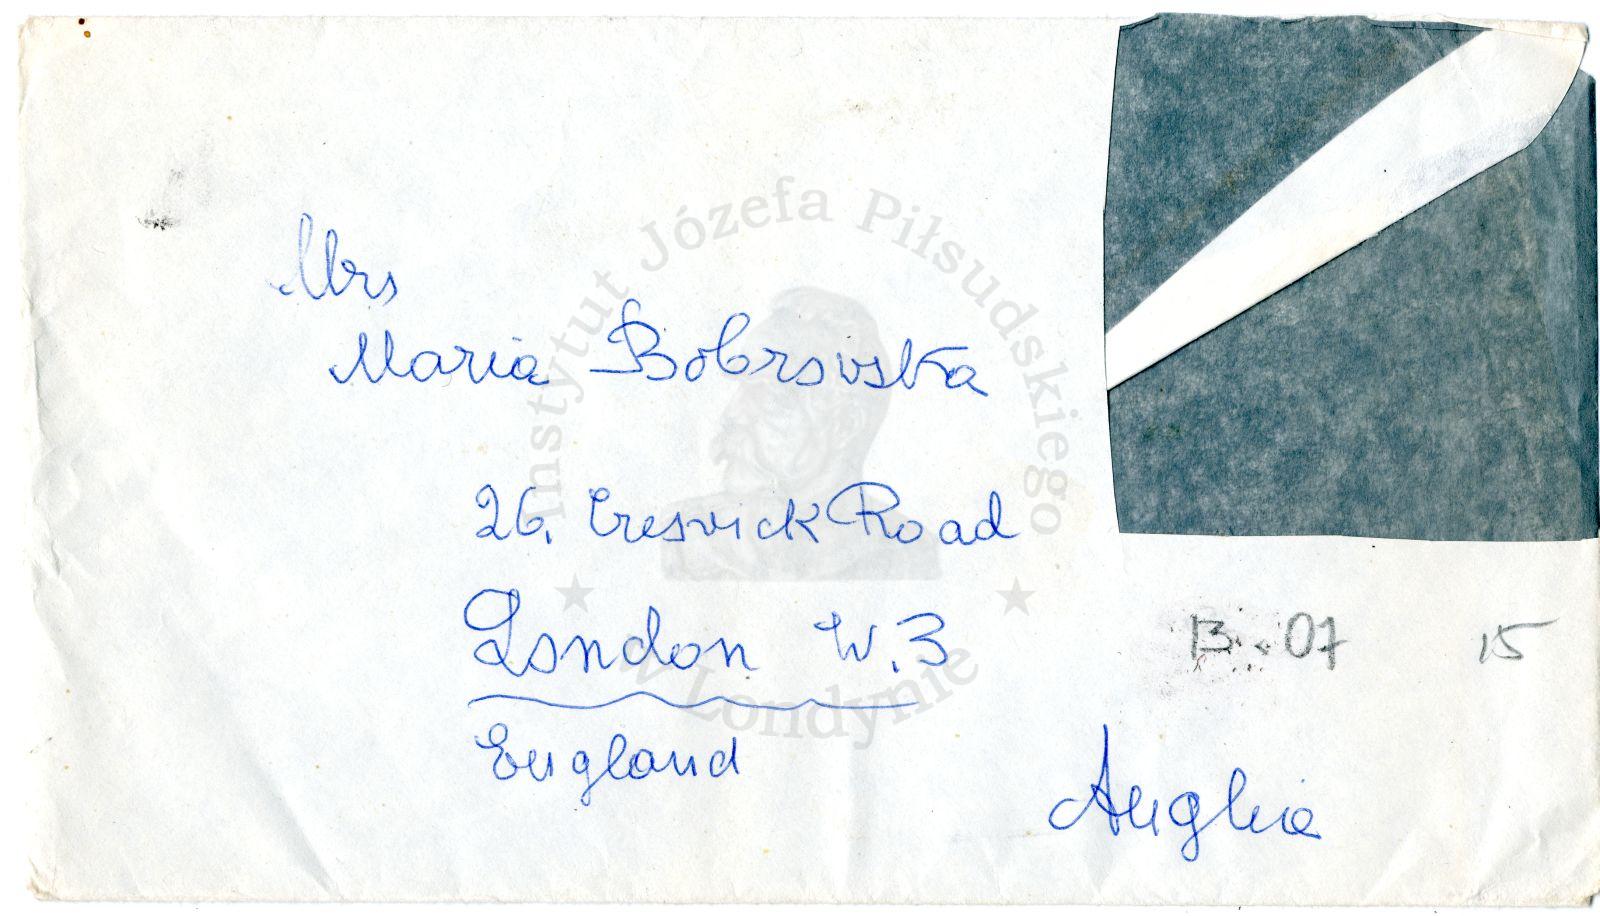 Mrs
Maria Bobrowska
26, Creswick Road
London W.3
England
Anglia
13. 07
15
Instytut Józefa Piłsudskiego
w Londynie